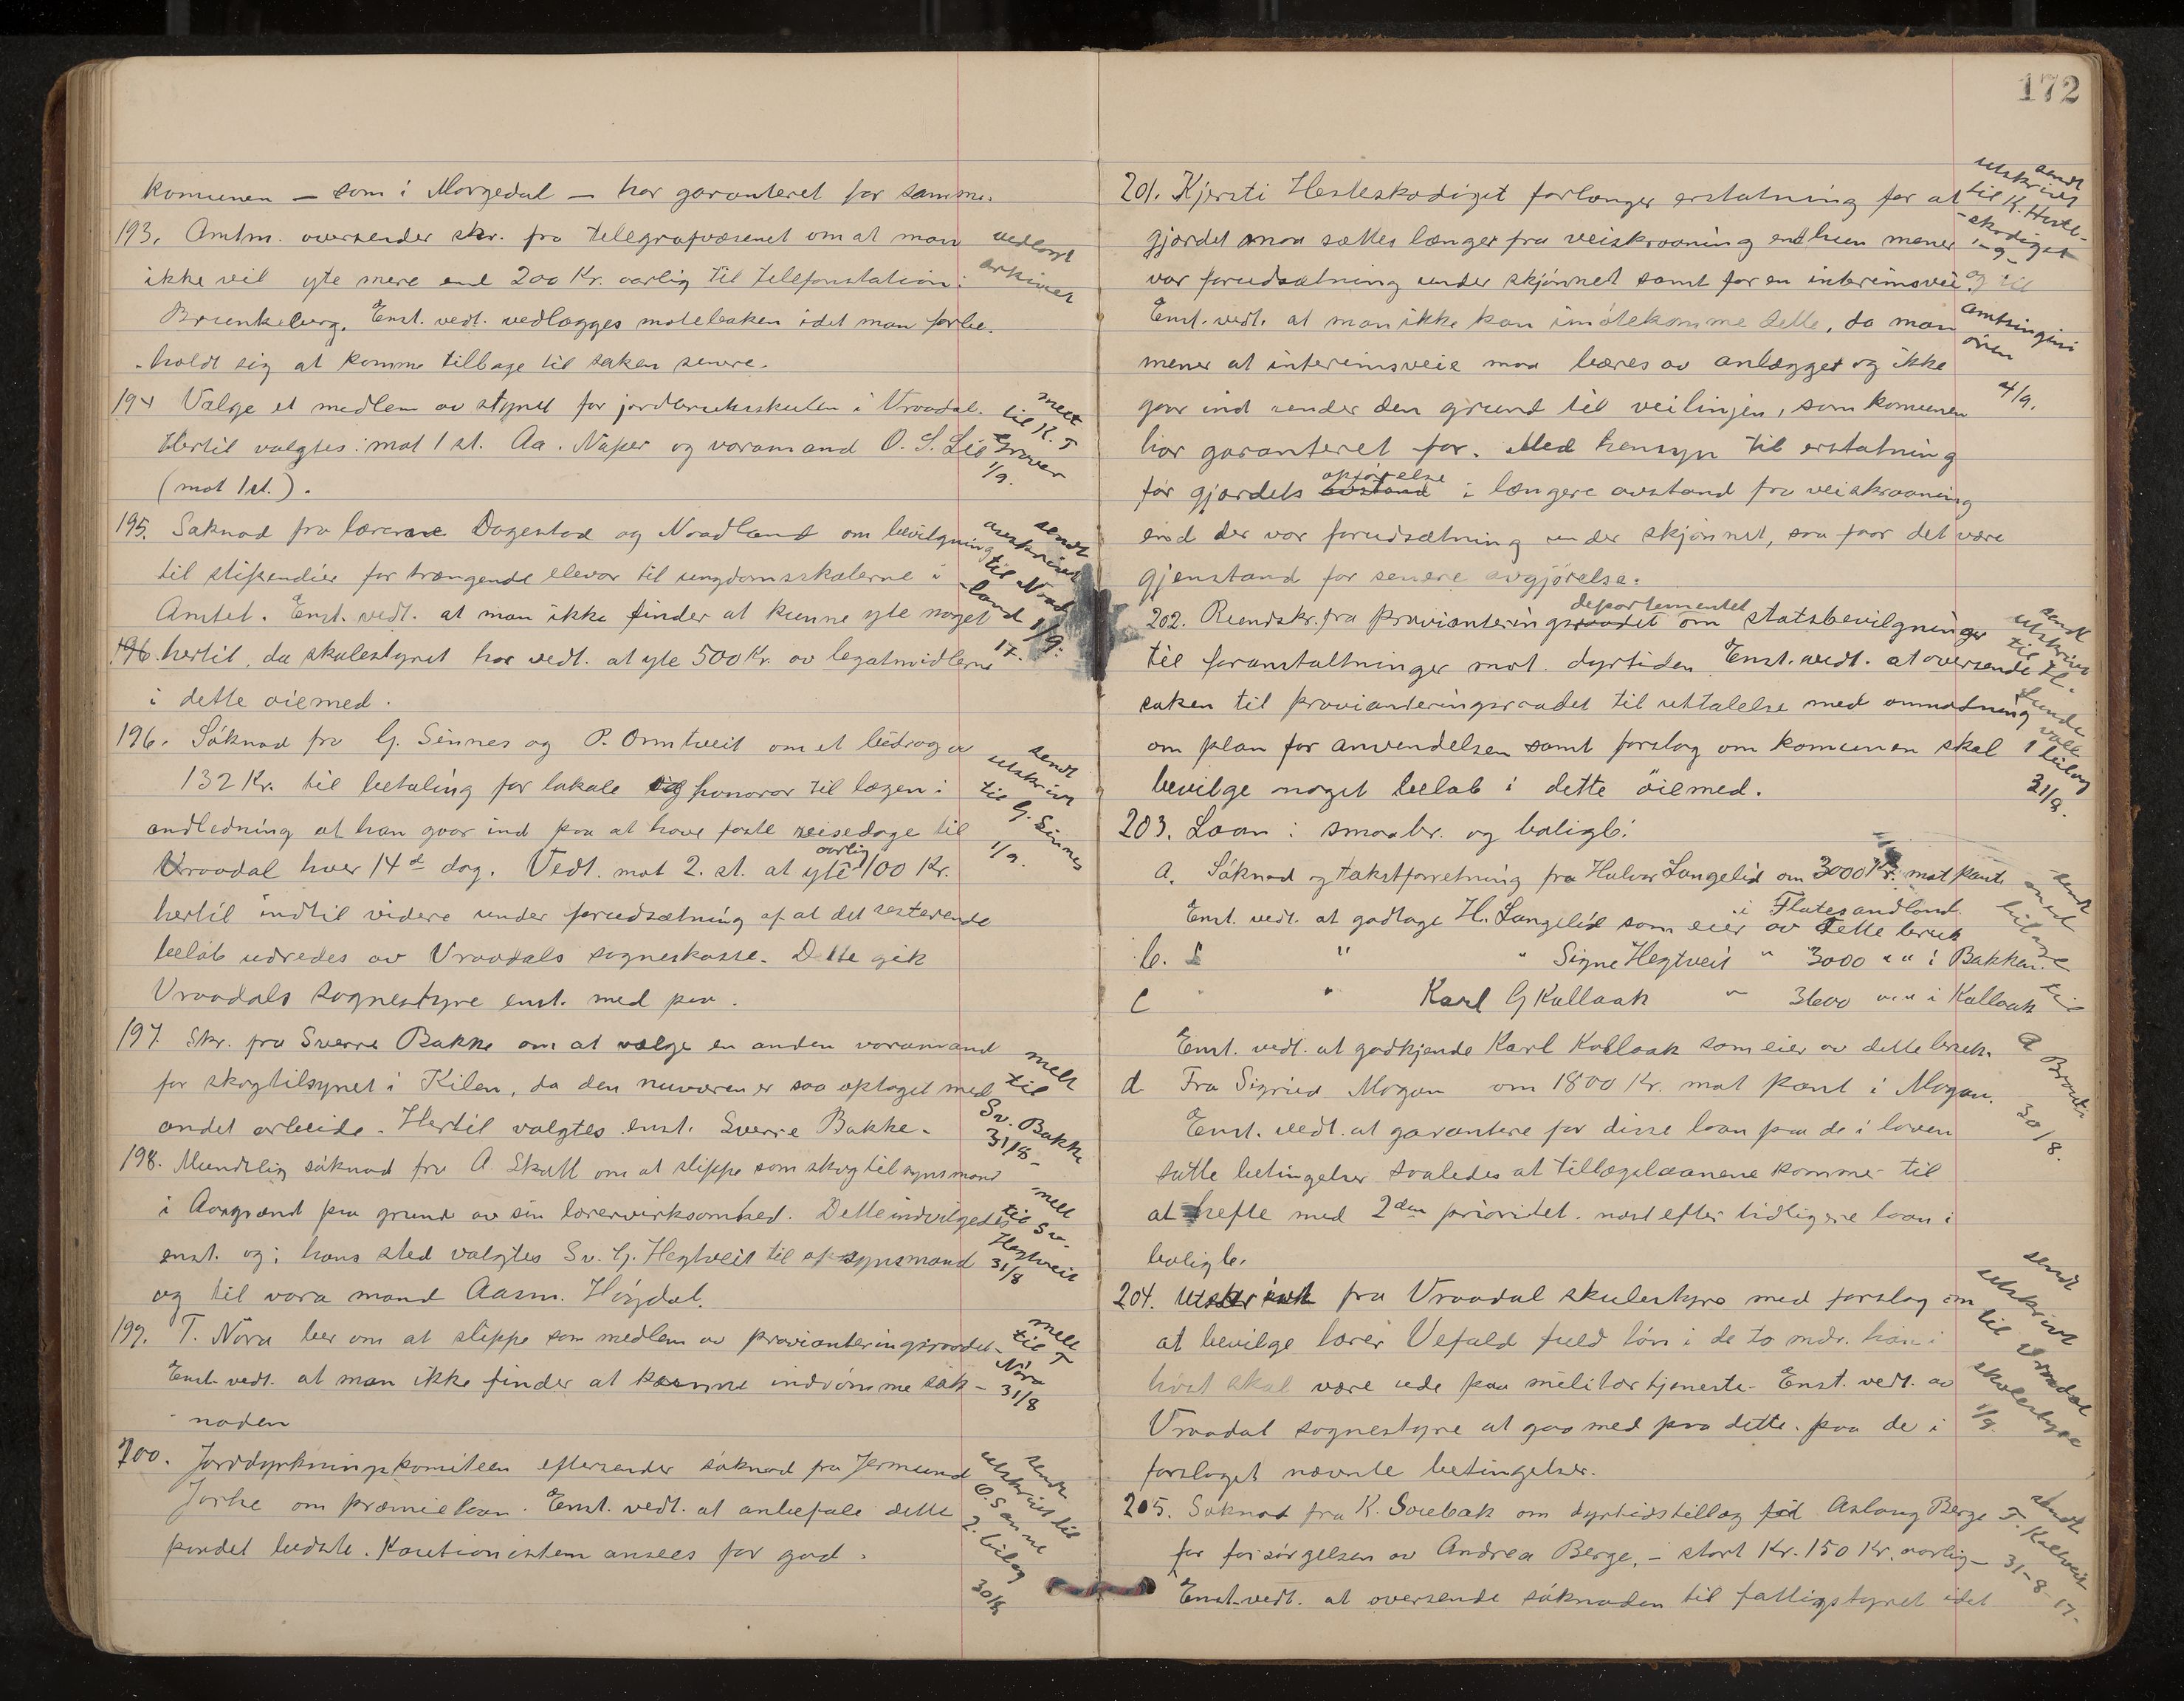 komunen — som i Morgedal — har garanteret for samme.
193. Amtm. oversender skr. fra telegrafvæsenet om at man
ikke vil yte mere end 200 Kr. aarlig til telefonstation i
Brunkeberg. Enst. vedt. vedlægges møteboken idet man forbe-
-holdt sig at komme tilbage til saken senere.
vedlagt
arkivet
194 Valge et medlem av styret for jordbruksskulen i Vraadal.
Hertil valgtes: mot 1 st. Aa. Naper og varamand O. S. Lie
(mot 1 st.).
melt
til K. T
Grover
1/9.
195. Søknad fra lærerne Dagestad og Nordland om bevilgning
til stipendier for trængende elever til ungdomsskolerne i
Amtet. Enst. vedt. at man ikke finder at kunne yte noget
196. hertil, da skulestyret har vedt. at yte 500 Kr. av legatmidlerne
i dette øiemed.
sendt
utskrivt
til Nord
-land 1/9.
17.
196. Søknad fra G. Sinnes og P. Ormtveit om et bidrag av
132 Kr. til betaling for lokale og honorar til lægen i
andledning at han gaar ind paa at have faste reisedage til
Vraadal hver 14d dag. Vedt. mot 2. st. at yte aarlig 100 Kr.
hertil indtil videre under forudsætning af at det resterende
beløb udredes av Vraadals sogneskasse. Dette gik
Vraadals sognestyre enst. med paa.
sendt
utskrivt
til G. Sinnes
1/9.
197. Skr. fra Sverre Bakke om at vælge en anden varamand
for skogtilsynet i Kilen, da den nuværen er saa optaget med
andet arbeide. Hertil valgtes enst. Sverre Bakke.
melt
til
Sv. Bakke
31/8-
198. Mundtlig søknad fra A. Skatt om at slippe som skogtilsynsmand
i Aargrænd paa grund av sin lærervirksomhed. Dette indvilgedes
enst. og i hans sted valgtes Sv. G. Hegtveit til opsynsmand
og til vara mand Aasm. Høydal.
melt
til Sv.
Hegtveit
31/8
199. T. Nøra ber om at slippe som medlem av provianteringsraadet.
Enst. vedt. at man ikke finder at kunne indrømme søk-
naden
melt
til T
Nøra
31/8
200. Jorddyrkningskomiteen eftersender søknad fra Jermund
Jorhe om præmielaan. Enst. vedt. at anbefale dette
pendet budste. Kautionistern ansees for god.
sendt
utskrivt til
O. Sanne
2. bilag
30/8
172
201. Kjersti Hesteskodiget forlanger erstatning for at
gjærdet maa sættes længer fra veiskraaning end hun mener
var forudsætning under skjønnet samt for en interimsvei.
Enst. vedt. at man ikke kan imøtekomme dette, da man
mener at interimsveie maa bæres av anlægget og ikke
gaar ind under den grund til veilinjen, som komunen
har garanteret for. Med hensyn til erstatning
for gjærdets avstand opførelse i længere avstand fra veiskraaning
end der var forudsætning under skjønnet, saa faar det være
gjenstand for senere avgjørelse.
sendt
utskrivt
til K. Heste-
-skodiget
og til
amtsingini
øren
4/9.
202. Rundskr. fra provianteringsraadet departementet om statsbevilgninger
til foranstaltninger mot dyrtiden. Enst. vedt. at oversende
saken til provianteringsraadet til uttalelse med anmodning
om plan for anvendelsen samt forslag om komunen skal
bevilge noget beløb i dette øiemed.
sendt
utskrivt
til H.
Lunde
vall
1 bilag
31/8.
203. Laan i smaabr. og boligb.
a. Søknad og takstforretning fra Halvor Langelid om 3000 Kr. mot pant
i Flatesandland.
Enst. vedt. at godtage H. Langelid som eier av dette bruk
b. " " Signe Hegtveit " 3000 " " i Bakken.
c " " Karl G Kallaak " 3600 " " i Kallaak
Enst. vedt. at godkjende Karl Kallaak som eier av dette bruk.
d Fra Sigrid Mogan om 1800 Kr. mot pant i Mogan.
Enst. vedt. at garantere for disse laan paa de i loven
satte betingelser saaledes at tillægslaanene kommer til
at hefte med 2den prioritet næst efter tidligere laan i
boligb.
sendt
med
bilage
til
A
30/8.
204. Utskrivt fra Vraadal skulestyre med forslag om
at bevilge lærer Vefald fuld løn i de to mdr. han i
høst skal være ude paa militærtjeneste. Enst. vedt. av
Vraadal sognestyre at gaa med paa dette paa de i
forslaget nævnte betingelser.
sendt
utskrivt
til Vraadal
skolestyre
1/9.
205. Søknad fra K. Soubak om dyrtidstillæg til Aslaug Berge
for forsørgelsen av Andrea Berge, - stort Kr. 150 Kr. aarlig-
Enst. vedt. at oversende søknaden til fattigstyret idet
sendt
T. Kaltveit
31-8-17-